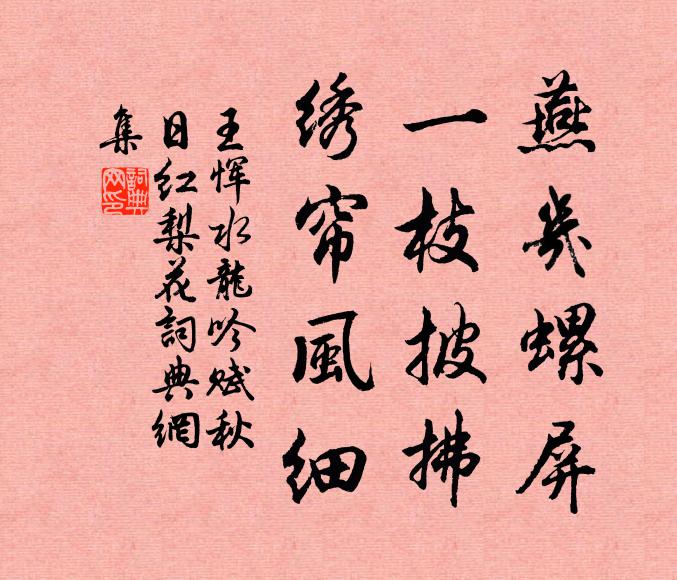 燕几螺屏
一枝披拂
绣帘風细
王恽水龍吟赋秋
日红梨花詞典網
集
詞典
网印